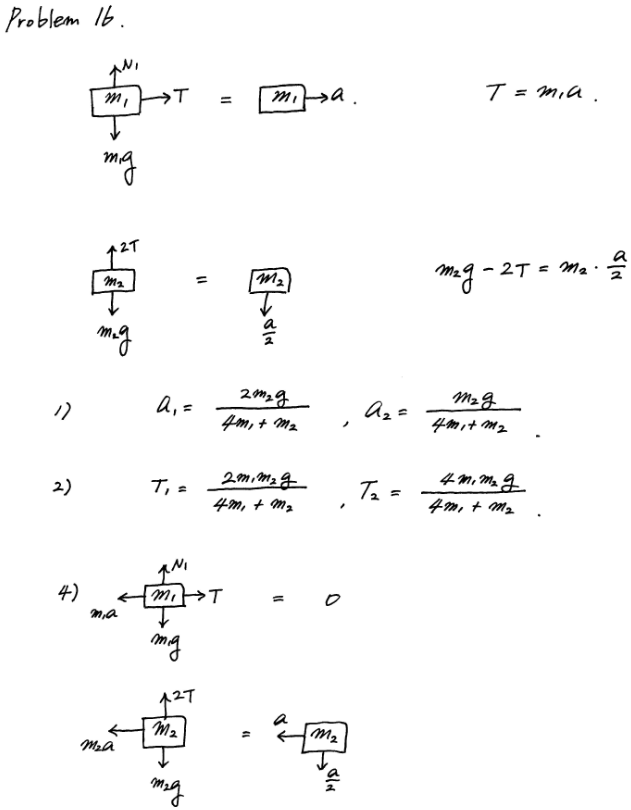 Problem 16.
N₁
m₁ T = m₁ a. T = m₁a.
m₁g
2T
m₂ = m₂ m₂g − 2T = m₂ · a/2
m₂g a/2
1) a₁ = 2m₂g / 4m₁ + m₂ , a₂ = m₂g / 4m₁ + m₂ .
2) T₁ = 2m₁m₂g / 4m₁ + m₂ , T₂ = 4m₁m₂g / 4m₁ + m₂ .
N₁
4) m₁a m₁ T = 0
m₁g
2T
m₂a m₂ = a m₂
m₂g a/2